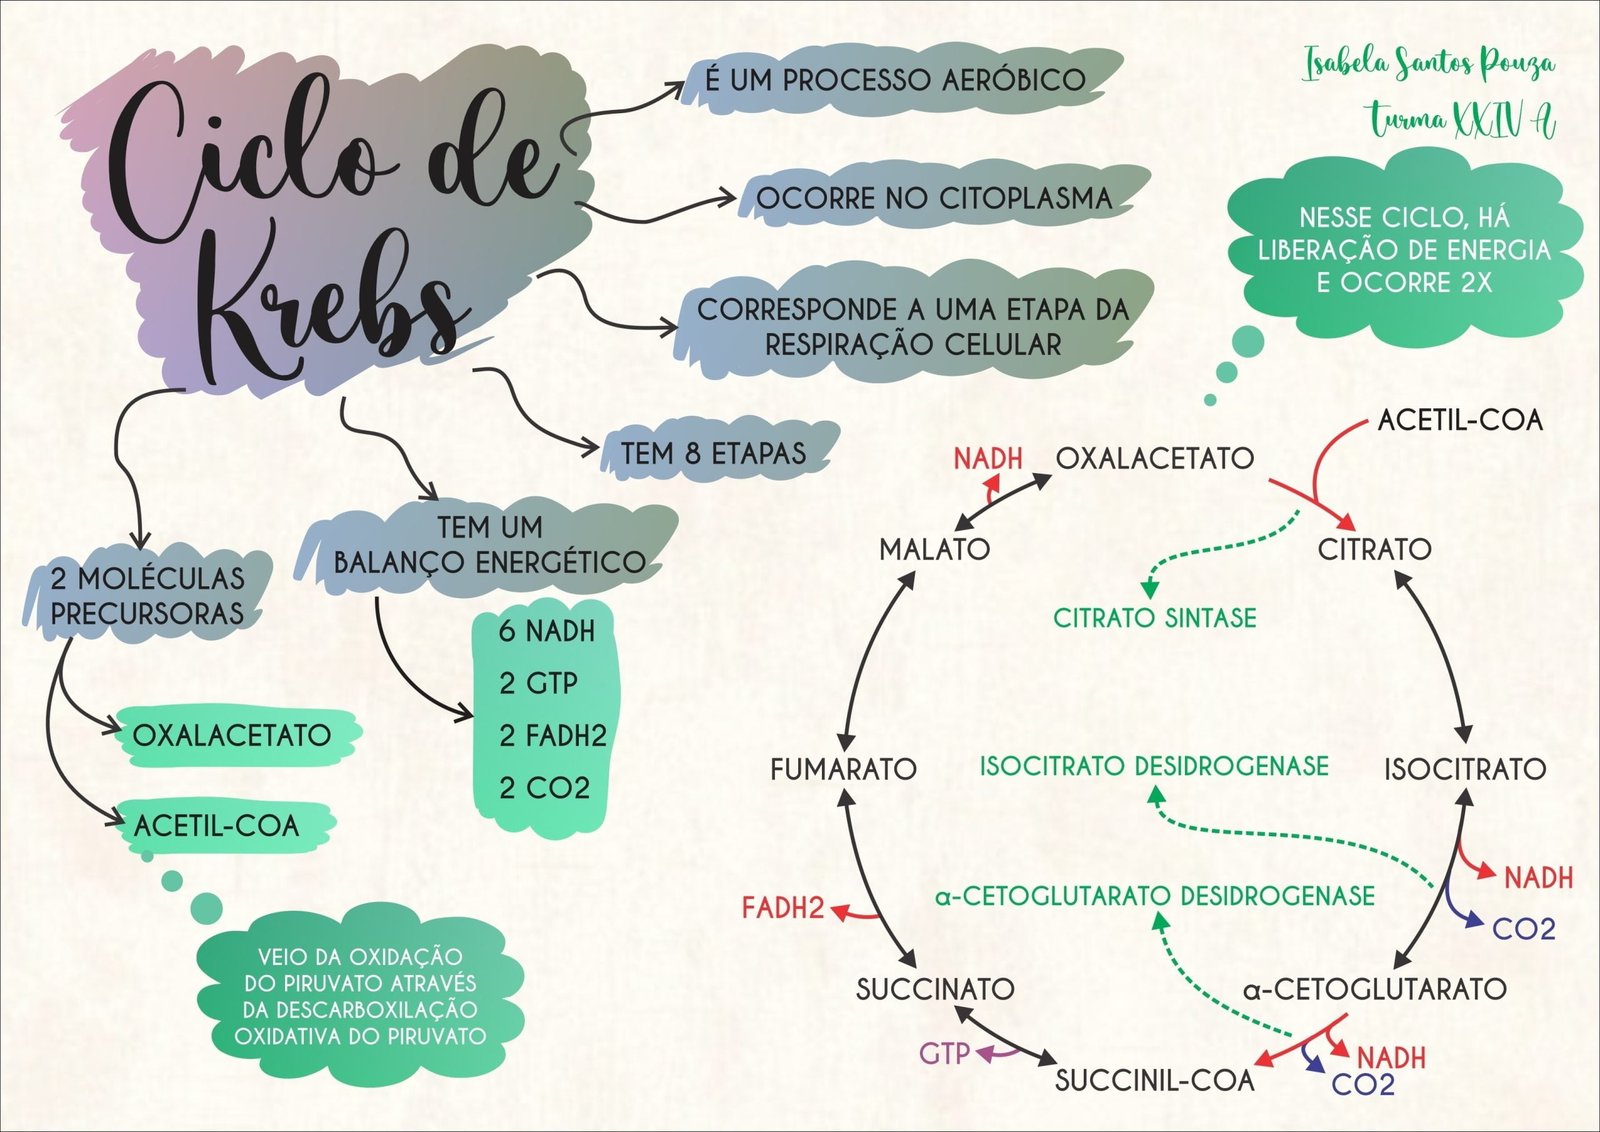 Ciclo de
Krebs
É UM PROCESSO AERÓBICO
OCORRE NO CITOPLASMA
CORRESPONDE A UMA ETAPA DA
RESPIRAÇÃO CELULAR
TEM 8 ETAPAS
TEM UM
BALANÇO ENERGÉTICO
6 NADH
2 GTP
2 FADH2
2 CO2
2 MOLÉCULAS
PRECURSORAS
OXALACETATO
ACETIL-COA
VEIO DA OXIDAÇÃO
DO PIRUVATO ATRAVÉS
DA DESCARBOXILAÇÃO
OXIDATIVA DO PIRUVATO
Isabela Santos Pouza
Turma XXIV A
NESSE CICLO, HÁ
LIBERAÇÃO DE ENERGIA
E OCORRE 2X
ACETIL-COA
NADH
OXALACETATO
MALATO
CITRATO
CITRATO SINTASE
FUMARATO
ISOCITRATO DESIDROGENASE
ISOCITRATO
NADH
FADH2
α-CETOGLUTARATO DESIDROGENASE
CO2
SUCCINATO
α-CETOGLUTARATO
GTP
NADH
SUCCINIL-COA
CO2